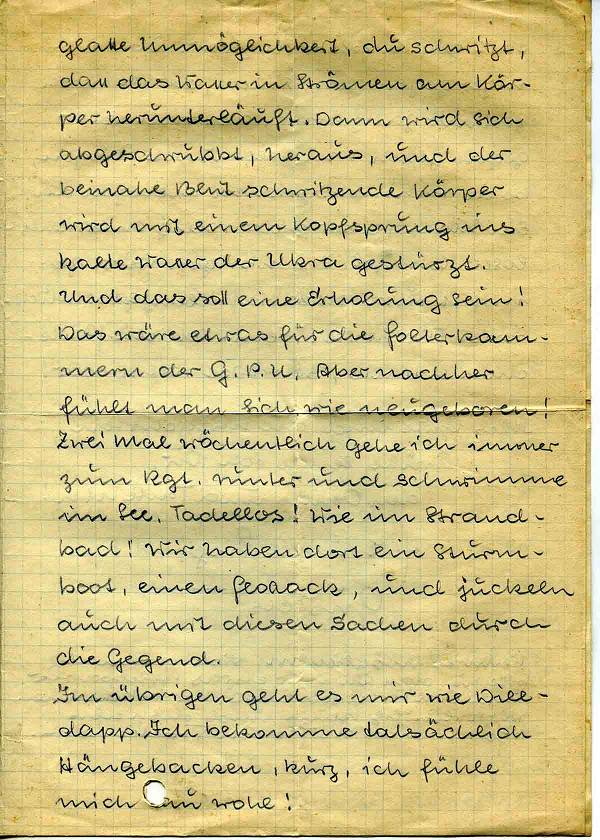 glatte Unmöglichkeit, du schwitzt,
daß das Wasser in Strömen am Kör-
per herunterläuft. Dann wird sich
abgeschrubbt, heraus, und der
beinahe Blut schwitzende Körper
wird mit einem Kopfsprung ins
kalte Wasser der Ukra gestürzt.
Und das soll eine Erholung sein!
Das wäre etwas für die Folterkam-
mern der G.P.U. Aber nachher
fühlt man sich wie neugeboren!
Zwei Mal wöchentlich gehe ich immer
zum Rgt. runter und schwimme
im See. Tadellos! Wie im Strand-
bad! Wir haben dort ein Sturm-
boot, einen, und juckeln
auch mit diesen Sachen durch
die Gegend.
Im übrigen geht es mir wie Dill-
dapp. Ich bekomme tatsächlich
Hängebacken, kurz, ich fühle
mich sau wohl!